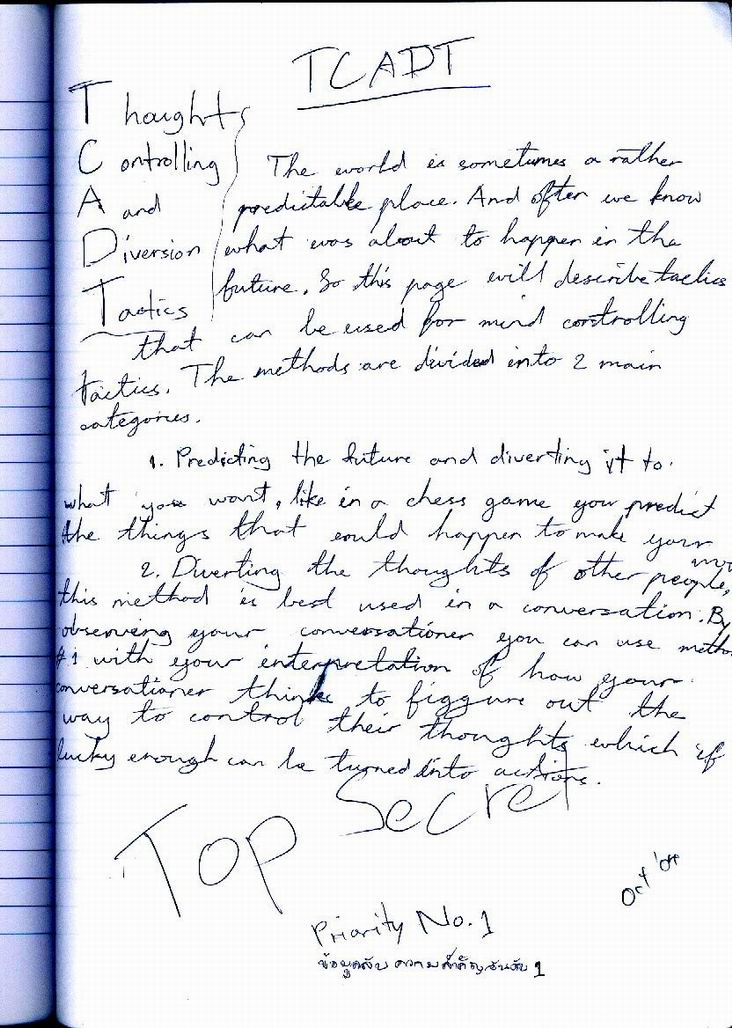 TCADT
Thoughts
Controlling
And and
Diversion
Tactics
The world is sometimes a rather
predictable place. And often we know
what was about to happen in the
future. So this page will describe tactics
that can be used for mind controlling
tactics. The methods are divided into 2 main
categories.
1. Predicting the future and diverting it to
what you want, like in a chess game you predict
the things that could happen to make your
2. Diverting the thoughts of other people,
this method is best used in a conversation. By
observing your conversationer you can use
#1 with your interpretation of how your
conversationer thinks to figgure out the
way to control their thoughts which if
lucky enough can be turned into actions.
Top Secret
Oct
Priority No. 1
ข้อมูลลับ ความสำคัญอันดับ 1